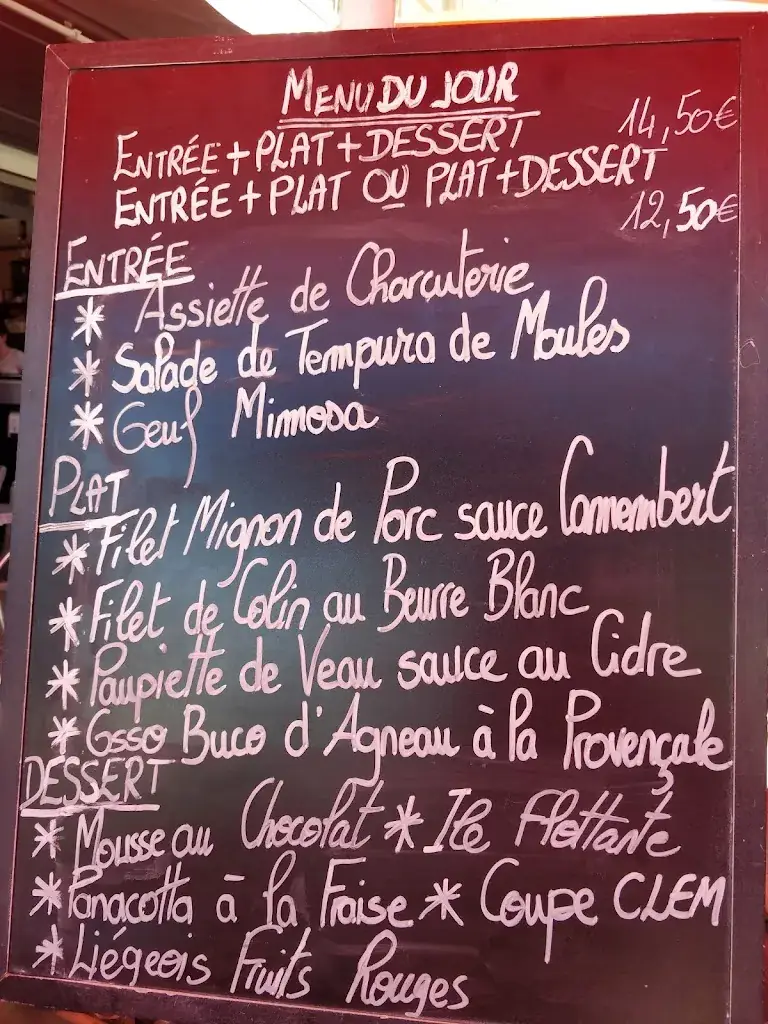 MENU DU JOUR
ENTRÉE + PLAT + DESSERT 14,50€
ENTRÉE + PLAT OU PLAT + DESSERT
12,50€
ENTRÉE
* Assiette de Charcuterie
* Salade de Tempura de Moules
* Oeuf Mimosa
PLAT
* Filet Mignon de Porc sauce Camembert
* Filet de Colin au Beurre Blanc
* Paupiette de Veau sauce au Cidre
* Osso Buco d'Agneau à la Provençale
DESSERT
* Mousse au Chocolat * Ile Flottante
* Panacotta à la Fraise * Coupe CLEM
* Liégeois Fruits Rouges